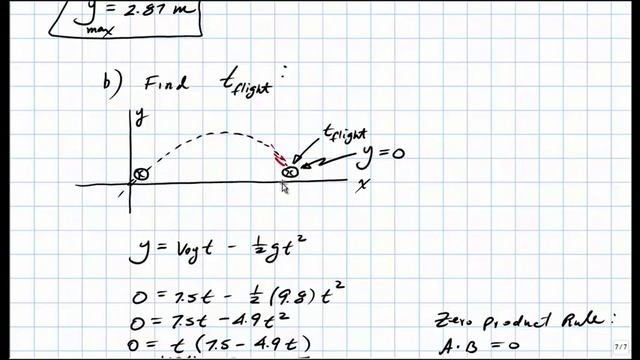 y max = 2.87 m
b) Find t flight :
y
t flight
y = 0
x
y = v0y t - 1/2 g t²
0 = 7.5t - 1/2 (9.8) t²
0 = 7.5t - 4.9t²
0 = t (7.5 - 4.9t)
Zero product Rule :
A · B = 0
7/7